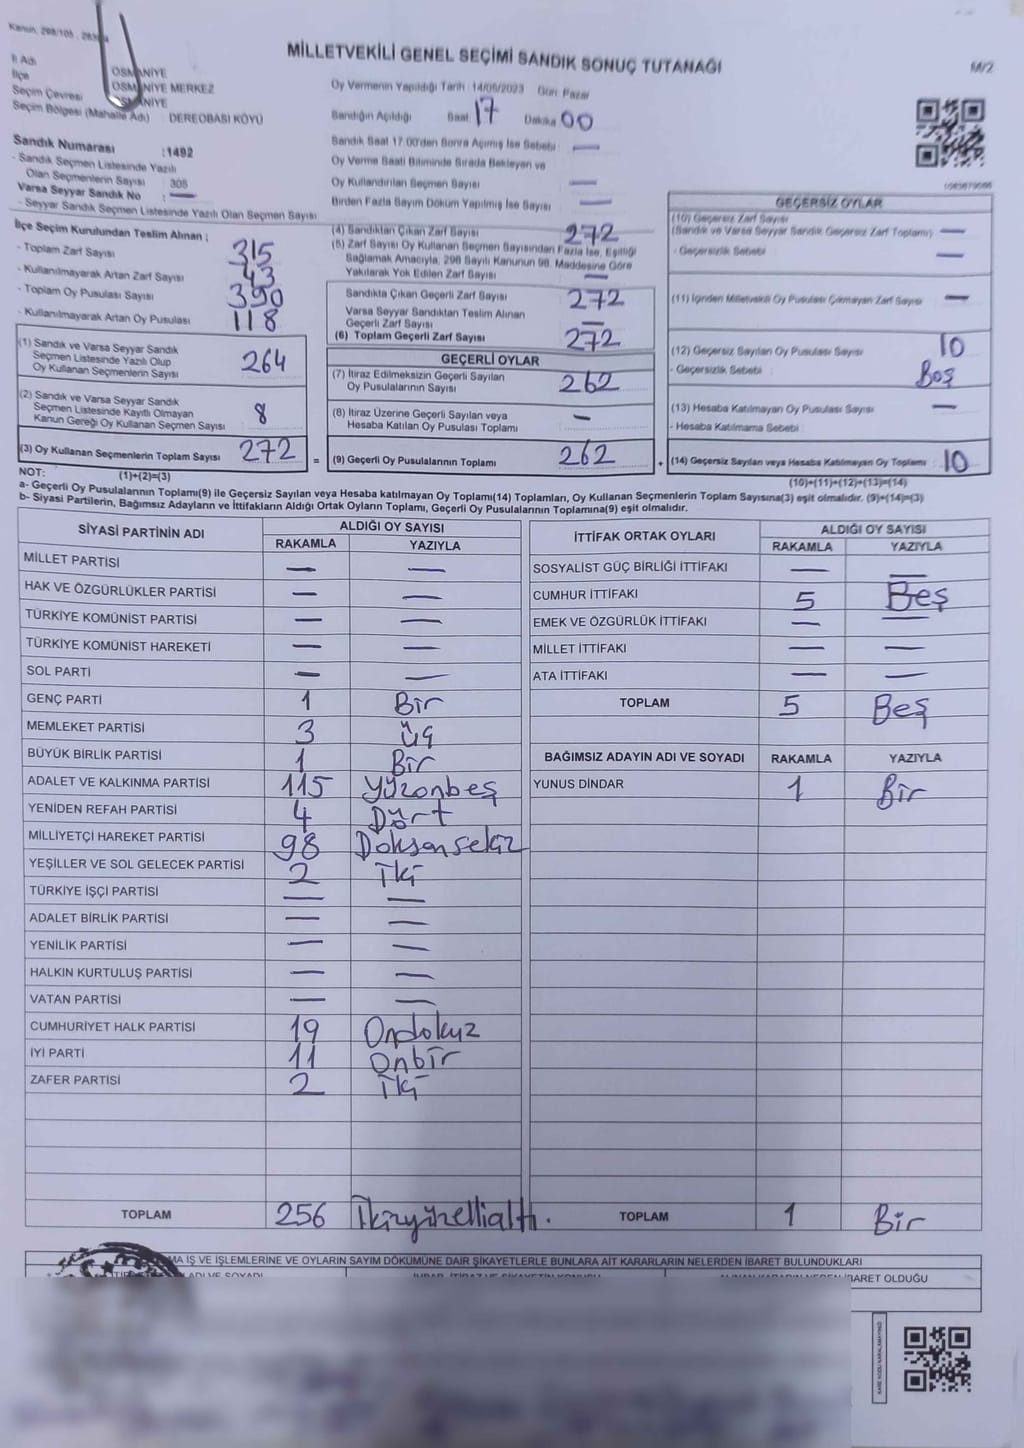 Kanun, 298/105
MİLLETVEKİLİ GENEL SEÇİMİ SANDIK SONUÇ TUTANAĞI
M/2
İl Adı OSMANİYE
İlçe OSMANİYE MERKEZ
Seçim Çevresi OSMANİYE
Seçim Bölgesi (Mahalle Adı) : DEREOBASI KÖYÜ
Oy Vermenin Yapıldığı Tarih : 14/05/2023 Gün: Pazar
Sandığın Açıldığı Saat 17 Dakika 00
Sandık Saat 17:00'den Sonra Açılmış İse Sebebi : —
Oy Verme Saati Bitiminde Sırada Bekleyen ve
Oy Kullandırılan Seçmen Sayısı —
Birden Fazla Sayım Döküm Yapılmış İse Sayısı —
Sandık Numarası : 1492
- Sandık Seçmen Listesinde Yazılı
Olan Seçmenlerin Sayısı : 305
Varsa Seyyar Sandık No : —
- Seyyar Sandık Seçmen Listesinde Yazılı Olan Seçmen Sayısı
İlçe Seçim Kurulundan Teslim Alınan ;
- Toplam Zarf Sayısı 315
- Kullanılmayarak Artan Zarf Sayısı 43
- Toplam Oy Pusulası Sayısı 390
- Kullanılmayarak Artan Oy Pusulası 118
(1) Sandık ve Varsa Seyyar Sandık
Seçmen Listesinde Yazılı Olup
Oy Kullanan Seçmenlerin Sayısı 264
(2) Sandık ve Varsa Seyyar Sandık
Seçmen Listesinde Kayıtlı Olmayan
Kanun Gereği Oy Kullanan Seçmen Sayısı 8
(3) Oy Kullanan Seçmenlerin Toplam Sayısı 272
(4) Sandıktan Çıkan Zarf Sayısı 272
(5) Zarf Sayısı Oy Kullanan Seçmen Sayısından Fazla İse, Eşitliği
Sağlamak Amacıyla, 298 Sayılı Kanunun 98. Maddesine Göre
Yakılarak Yok Edilen Zarf Sayısı —
Sandıkta Çıkan Geçerli Zarf Sayısı 272
Varsa Seyyar Sandıktan Teslim Alınan
Geçerli Zarf Sayısı —
(6) Toplam Geçerli Zarf Sayısı 272
GEÇERLİ OYLAR
(7) İtiraz Edilmeksizin Geçerli Sayılan
Oy Pusulalarının Sayısı 262
(8) İtiraz Üzerine Geçerli Sayılan veya
Hesaba Katılan Oy Pusulası Toplamı —
= (9) Geçerli Oy Pusulalarının Toplamı 262
GEÇERSİZ OYLAR
(10) Geçersiz Zarf Sayısı
(Sandık ve Varsa Seyyar Sandık Geçersiz Zarf Toplamı) —
- Geçersizlik Sebebi : —
(11) İçinden Milletvekili Oy Pusulası Çıkmayan Zarf Sayısı —
(12) Geçersiz Sayılan Oy Pusulası Sayısı 10
- Geçersizlik Sebebi : Boş
(13) Hesaba Katılmayan Oy Pusulası Sayısı —
- Hesaba Katılmama Sebebi :
+ (14) Geçersiz Sayılan veya Hesaba Katılmayan Oy Toplamı : 10
NOT: (1)+(2)=(3)
(10)+(11)+(12)+(13)=(14)
a- Geçerli Oy Pusulalarının Toplamı(9) ile Geçersiz Sayılan veya Hesaba katılmayan Oy Toplamı(14) Toplamları, Oy Kullanan Seçmenlerin Toplam Sayısına(3) eşit olmalıdır. (9)+(14)=(3)
b- Siyasi Partilerin, Bağımsız Adayların ve İttifakların Aldığı Ortak Oyların Toplamı, Geçerli Oy Pusulalarının Toplamına(9) eşit olmalıdır.
SİYASİ PARTİNİN ADI ALDIĞI OY SAYISI
RAKAMLA YAZIYLA
MİLLET PARTİSİ — —
HAK VE ÖZGÜRLÜKLER PARTİSİ — —
TÜRKİYE KOMÜNİST PARTİSİ — —
TÜRKİYE KOMÜNİST HAREKETİ — —
SOL PARTİ — —
GENÇ PARTİ 1 Bir
MEMLEKET PARTİSİ 3 Üç
BÜYÜK BİRLİK PARTİSİ 1 Bir
ADALET VE KALKINMA PARTİSİ 115 Yüzonbeş
YENİDEN REFAH PARTİSİ 4 Dört
MİLLİYETÇİ HAREKET PARTİSİ 98 Doksansekiz
YEŞİLLER VE SOL GELECEK PARTİSİ 2 İki
TÜRKİYE İŞÇİ PARTİSİ — —
ADALET BİRLİK PARTİSİ — —
YENİLİK PARTİSİ — —
HALKIN KURTULUŞ PARTİSİ — —
VATAN PARTİSİ — —
CUMHURİYET HALK PARTİSİ 19 Ondokuz
İYİ PARTİ 11 Onbir
ZAFER PARTİSİ 2 İki
TOPLAM 256 İkiyüzellialtı.
İTTİFAK ORTAK OYLARI ALDIĞI OY SAYISI
RAKAMLA YAZIYLA
SOSYALİST GÜÇ BİRLİĞİ İTTİFAKI — —
CUMHUR İTTİFAKI 5 Beş
EMEK VE ÖZGÜRLÜK İTTİFAKI — —
MİLLET İTTİFAKI — —
ATA İTTİFAKI — —
TOPLAM 5 Beş
BAĞIMSIZ ADAYIN ADI VE SOYADI RAKAMLA YAZIYLA
YUNUS DİNDAR 1 Bir
TOPLAM 1 Bir
İŞ VE İŞLEMLERİNE VE OYLARIN SAYIM DÖKÜMÜNE DAİR ŞİKAYETLERLE BUNLARA AİT KARARLARIN NELERDEN İBARET BULUNDUKLARI
ADI VE SOYADI İHBAR, İTİRAZ VE ŞİKAYETİN KONUSU ALINAN KARARIN NEDEN İBARET OLDUĞU
KARE KODU KARALAMAYINIZ!